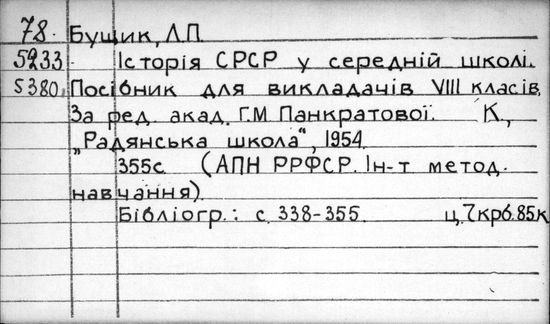 78. Бущик, Л.П.
5233 Історія СРСР у середній школі.
5380. Посібник для викладачів VIII класів.
За ред. акад. Г.М Панкратової. К.,
„Радянська школа“, 1954.
355с. (АПН РРФСР. Ін-т метод.
навчання).
Бібліогр.: с. 338-355. ц. 7крб. 85к